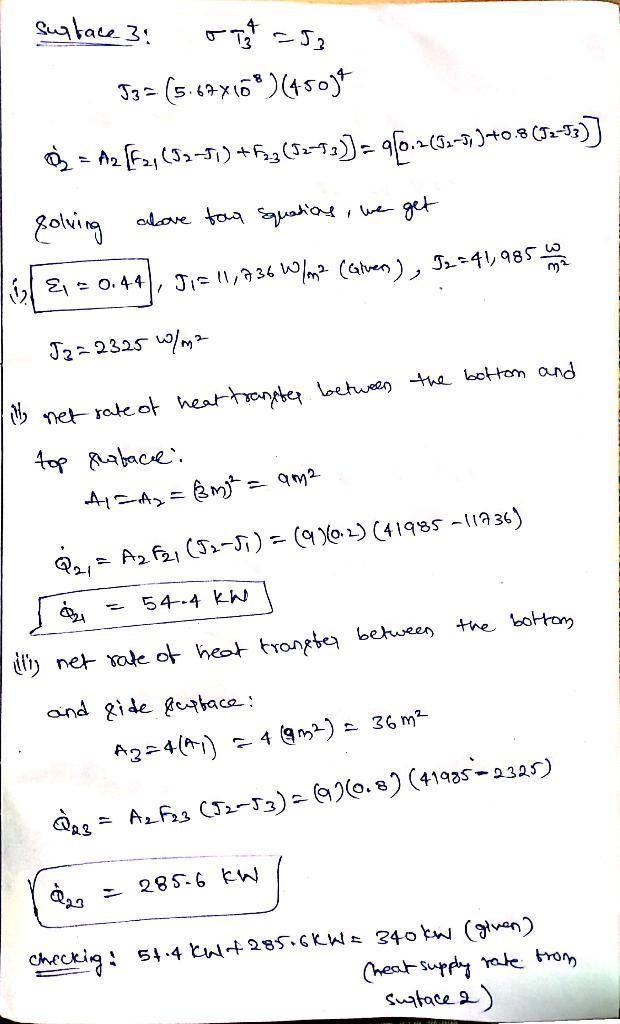 Surface 3: σ T₃⁴ = J₃
J₃ = (5.67×10⁻⁸)(450)⁴
Q̇₂ = A₂[F₂₁(J₂-J₁) + F₂₃(J₂-J₃)] = 9[0.2(J₂-J₁)+0.8(J₂-J₃)]
Solving above four equations, we get
i) ε₁ = 0.44, J₁ = 11,736 W/m² (Given), J₂ = 41,985 W/m²
J₃ = 2325 W/m²
ii) net rate of heat transfer between the bottom and
top surface:
A₁ = A₂ = (3m)² = 9m²
Q̇₂₁ = A₂F₂₁(J₂-J₁) = (9)(0.2)(41985-11736)
Q̇₂₁ = 54.4 KW
iii) net rate of heat transfer between the bottom
and side surface:
A₃ = 4(A₁) = 4(9m²) = 36m²
Q̇₂₃ = A₂F₂₃(J₂-J₃) = (9)(0.8)(41985-2325)
Q̇₂₃ = 285.6 KW
checking: 54.4 KW + 285.6KW = 340KW (given)
(heat supply rate from
surface 2)